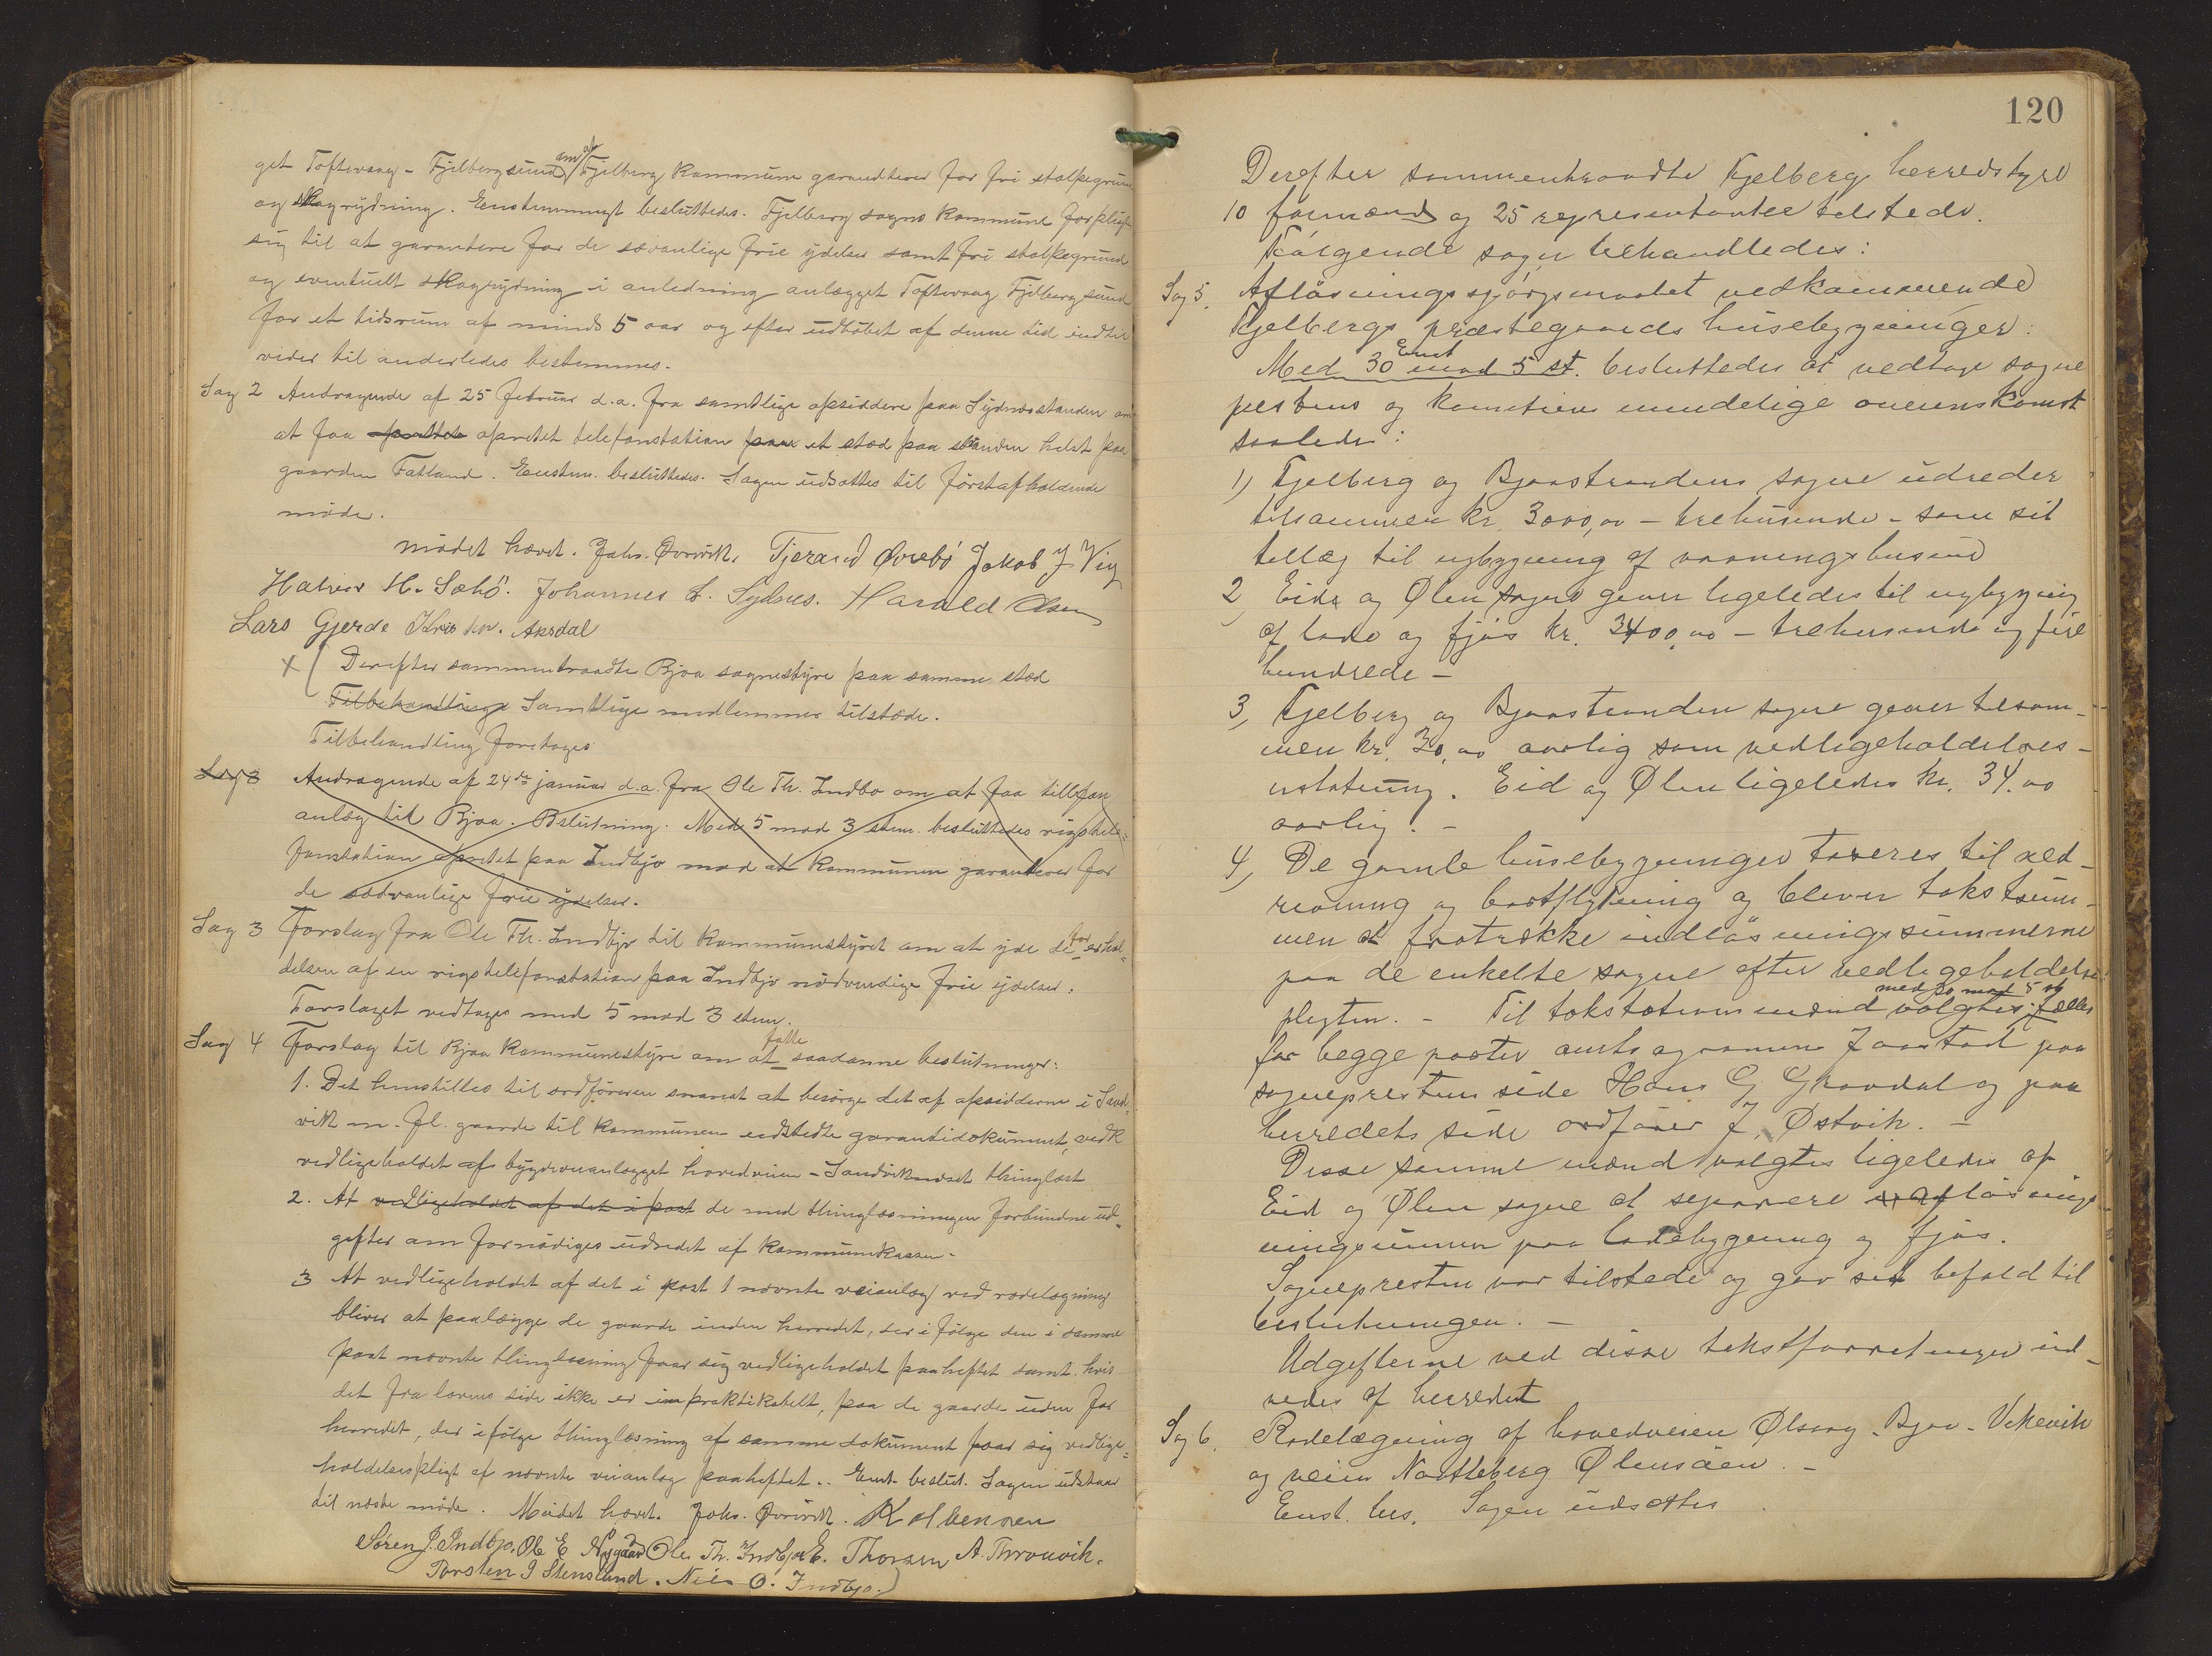 get Toftevaag - Fjelbergsund om at Fjelberg kommune garandterer for fri stolpegrund
og skogrydning. Enstemmigt besluttedes. Fjelberg sogns kommune forpligter
sig til at garantere for de sævanlige frie ydelser samt fri stolpegrund
og eventuelt skogrydning i anledning anlægget Toftevaag Fjelbergsund
for et tidsrum af minds 5 aar og efter udløbet af denne tid indtil
vider til anderledes bestemmes.
Sag 2 Andragende af 25 februar d.a. fra samtlige opsiddere paa Sydnæsstranden om
at faa oprettet telefonstation paa et stæd paa stranden helst paa
gaarden Fatland. Enstem. besluttedes. Sagen udsættes til førstafholdende
møde.
mødet hævet. Johs. Østvik. Tjerand Øvrebö Jakob J Vig
Halvor H. Sæbö. Johannes L. Sydnes. Harald Olsen
Lars Gjerde Kris Aksdal
Derefter sammentraadte Bjoa sognestyre paa samme stæd
Tilbehandling Samtlige medlemmer tilstæde.
Tilbehandling foretoges
Sag 3 Andragende af 24de januar d.a. fra Ole Th. Indbø om at faa tillefon
anlæg til Bjoa. Bslutning. Med 5 mod 3 stem. besluttedes rigstele-
fonstation oprettet paa Indbjo mod at kommunen garanterer for
de sædvanlige frie ydelser.
Sag 3 Forslag fra Ole Th. Indbjo til kommunestyret om at yde de for erhol-
delsen af en rigstelefonstation paa Indbjo nødvendige frie ydelser.
Forslaget vedtoges med 5 mod 3 stem.
Sag 4 Forslag til Bjoa kommunestyre om at fatte saadanne beslutninger:
1. Det henstilles til ordføreren snarest at besørge det af opsidderne i Sand-
vik m. fl. gaarde til kommunen udstedte garantidokument, vedk
vedligeholdet af bygdeveianlægget hovedveien - Sandviknæset thinglæst
2. At vedligeholdet af det i post de med thinglæsningen forbundne ud-
gifter om fornødiges udredet af kommunekassen.
3 At vedligeholdet af det i post 1 nævnte veianlæg ved rodelægning
bliver at paalægge de gaarde inden herredet, der i følge den i samme
post nævnte thinglæsning faar sig vedligeholdet paaheftet samt. hvis
det fra lovens side ikke er impraktikabelt, paa de gaarde uden for
herredet, der ifølge thinglæsning af samme dokument faar sig vedlige-
holdelsespligt af nævnte veianlæg paaheftet. Enst. beslut. Sagen udstaar
til næste møde. Mødet hævet. Johs. Østvik. K Kolbensen
Søren J. Indbjo. Ole E Nygaard Ole Th. Indbjo E. Thorsen A. Throvik.
Torsten J Stensland. Nils O. Indbjo.
120
Derefter sammentraadte Fjelberg herredstyre
10 formænd og 25 representanter tilstede.
Følgende sager behandledes:
Sag 5. Afløsningsspørgsmaalet vedkommende
Fjelbergs præstegaards husebygninger:
Med 30 mod 5 st. Enst besluttedes at vedtage sogne
pestens og komiteens mundelige overenskomst
saaledes:
1) Fjelberg og Bjoastrandens sogne udreder
tilsammen kr. 3000,00 - tretusende - som sit
tillæg til nybygning af vaaningshuset
2, Eids og Ølen sogne giver ligeledes til nybygning
af lade og fjøs kr. 3400,00 - tretusende og fire
hundrede -
3, Fjelberg og Bjoastranden sogne giver tilsam-
men kr. 30,00 aarlig som vedligeholdelses-
erstatning. Eid og Ølen ligeledes kr. 34.00
aarlig. -
4, De gamle husebygninger taxeres til ned-
rivning og bortflytning og bliver takstsum-
men at fratrække indløsningssummerne
paa de enkelte sogne efter vedligeholdelses
pligten. - Til takstationsmænd valgtes med 30 mod 5 st fælles
for begge parter amtsagronom Jaastad paa
sogneprestens side Hans G Gravdal og paa
herredets side ordfører J. Østvik. -
Disse samme mænd valgtes ligeledes af
Eid og Ølen sogne at separere afløsnings
ningssummen paa ladebygning og fjøs.
Sognepresten var tilstede og gav sit bifald til
beslutningen. -
Udgifterne ved disse takstforretninger ud-
redes af herredet
Sag 6. Rodelægning af hovedveien Ølsvaag - Bjoa - Vikevik
og veien Nærtleberg Ølensøen. -
Enst. bes. Sagen udsættes